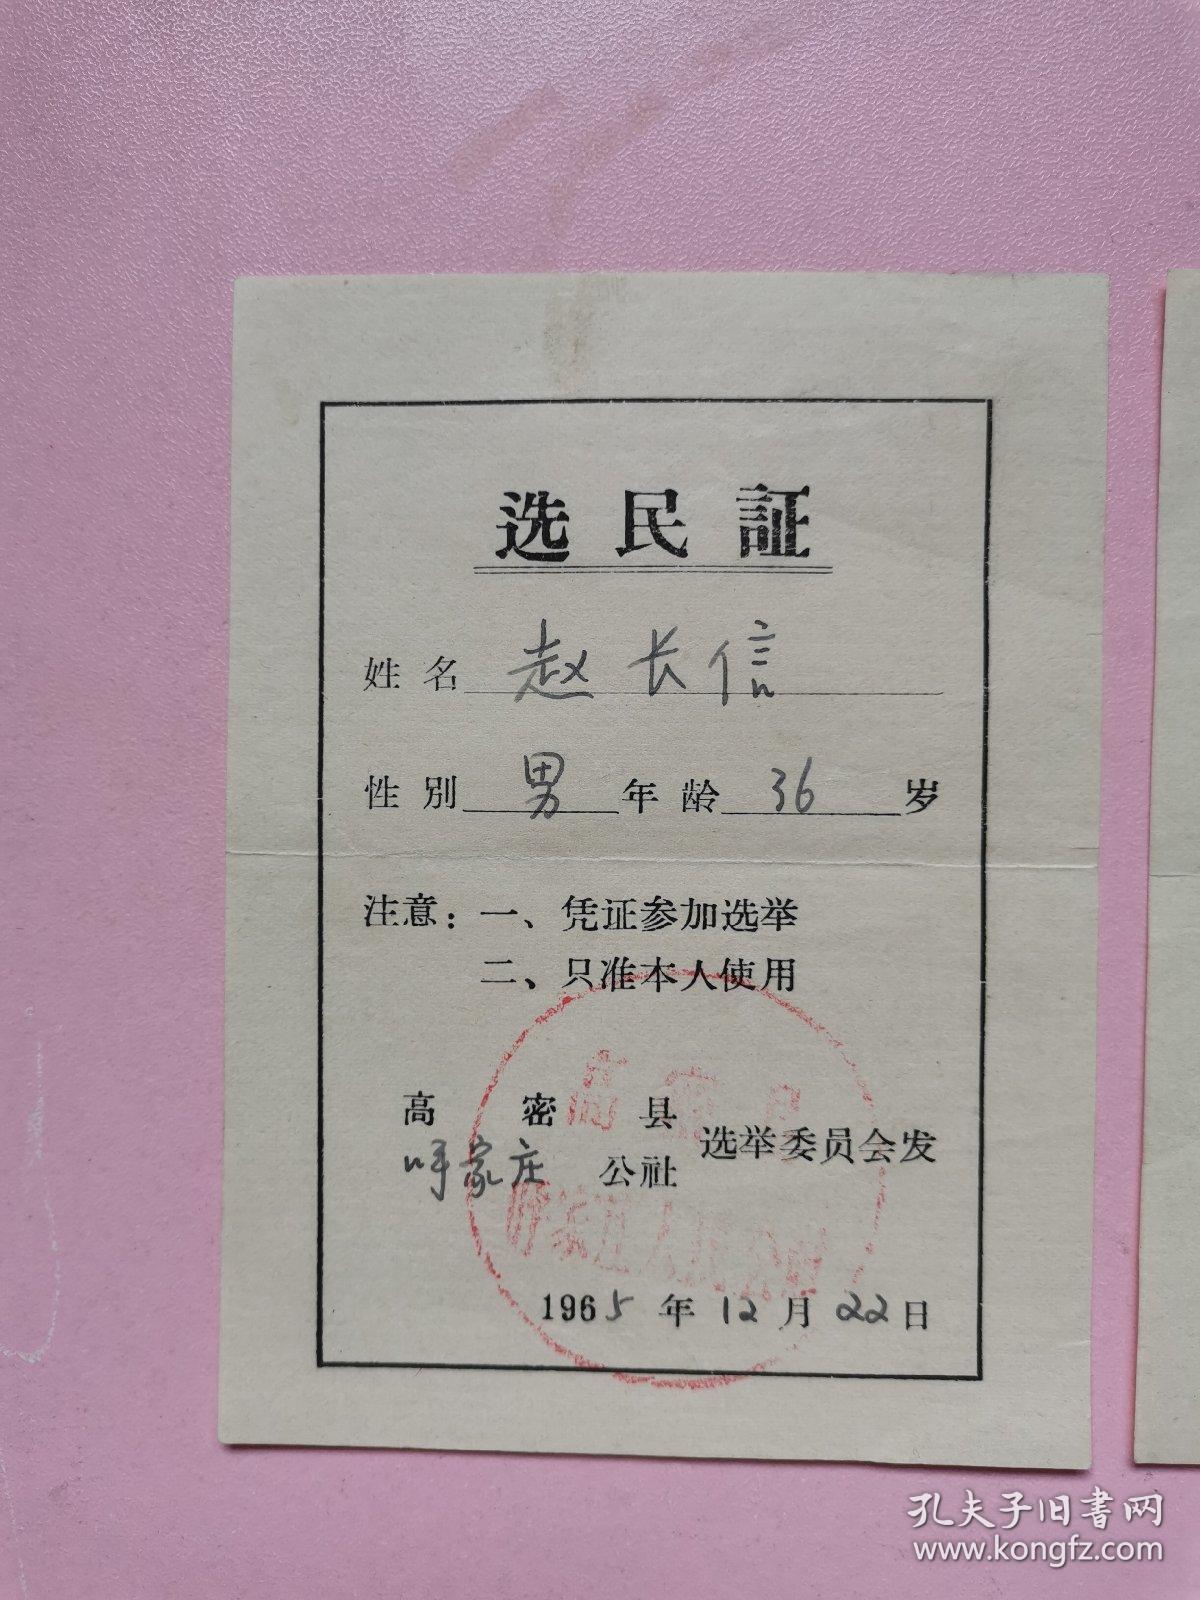 选民証
姓名 赵长信
性别 男 年龄 36 岁
注意：一、凭证参加选举
二、只准本人使用
高密县
呼家庄 公社 选举委员会发
1965年12月22日
高密县
呼家庄人民公社
孔夫子旧书网
www.kongfz.com